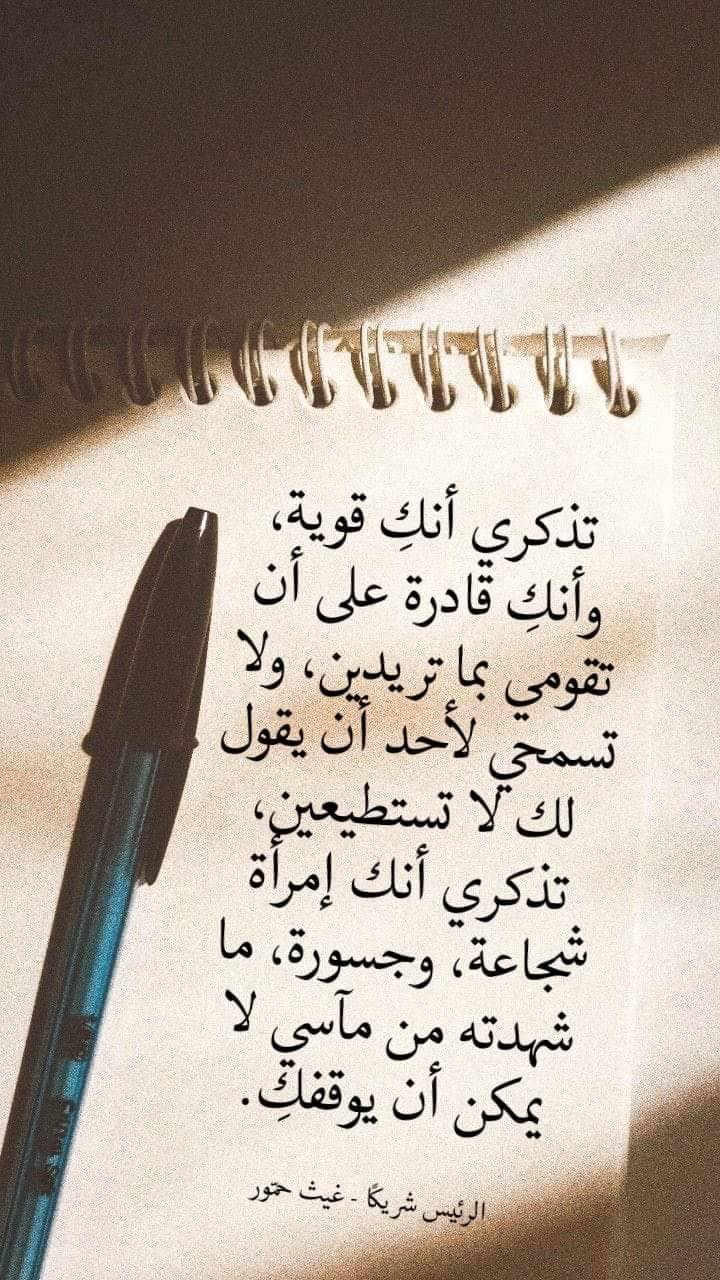 تذكري أنكِ قوية،
وأنكِ قادرة على أن
تقومي بما تريدين، ولا
تسمحي لأحد أن يقول
لك لا تستطيعين،
تذكري أنك إمرأة
شجاعة، وجسورة، ما
شهدته من مآسي لا
يمكن أن يوقفكِ.
الرئيس شريكًا - غيث حمّور